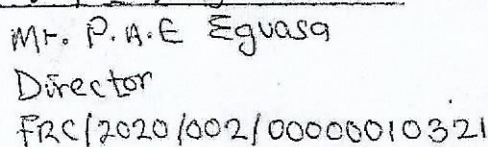 Mr. P.A.E Eguasa
Director
FRC/2020/002/00000010321